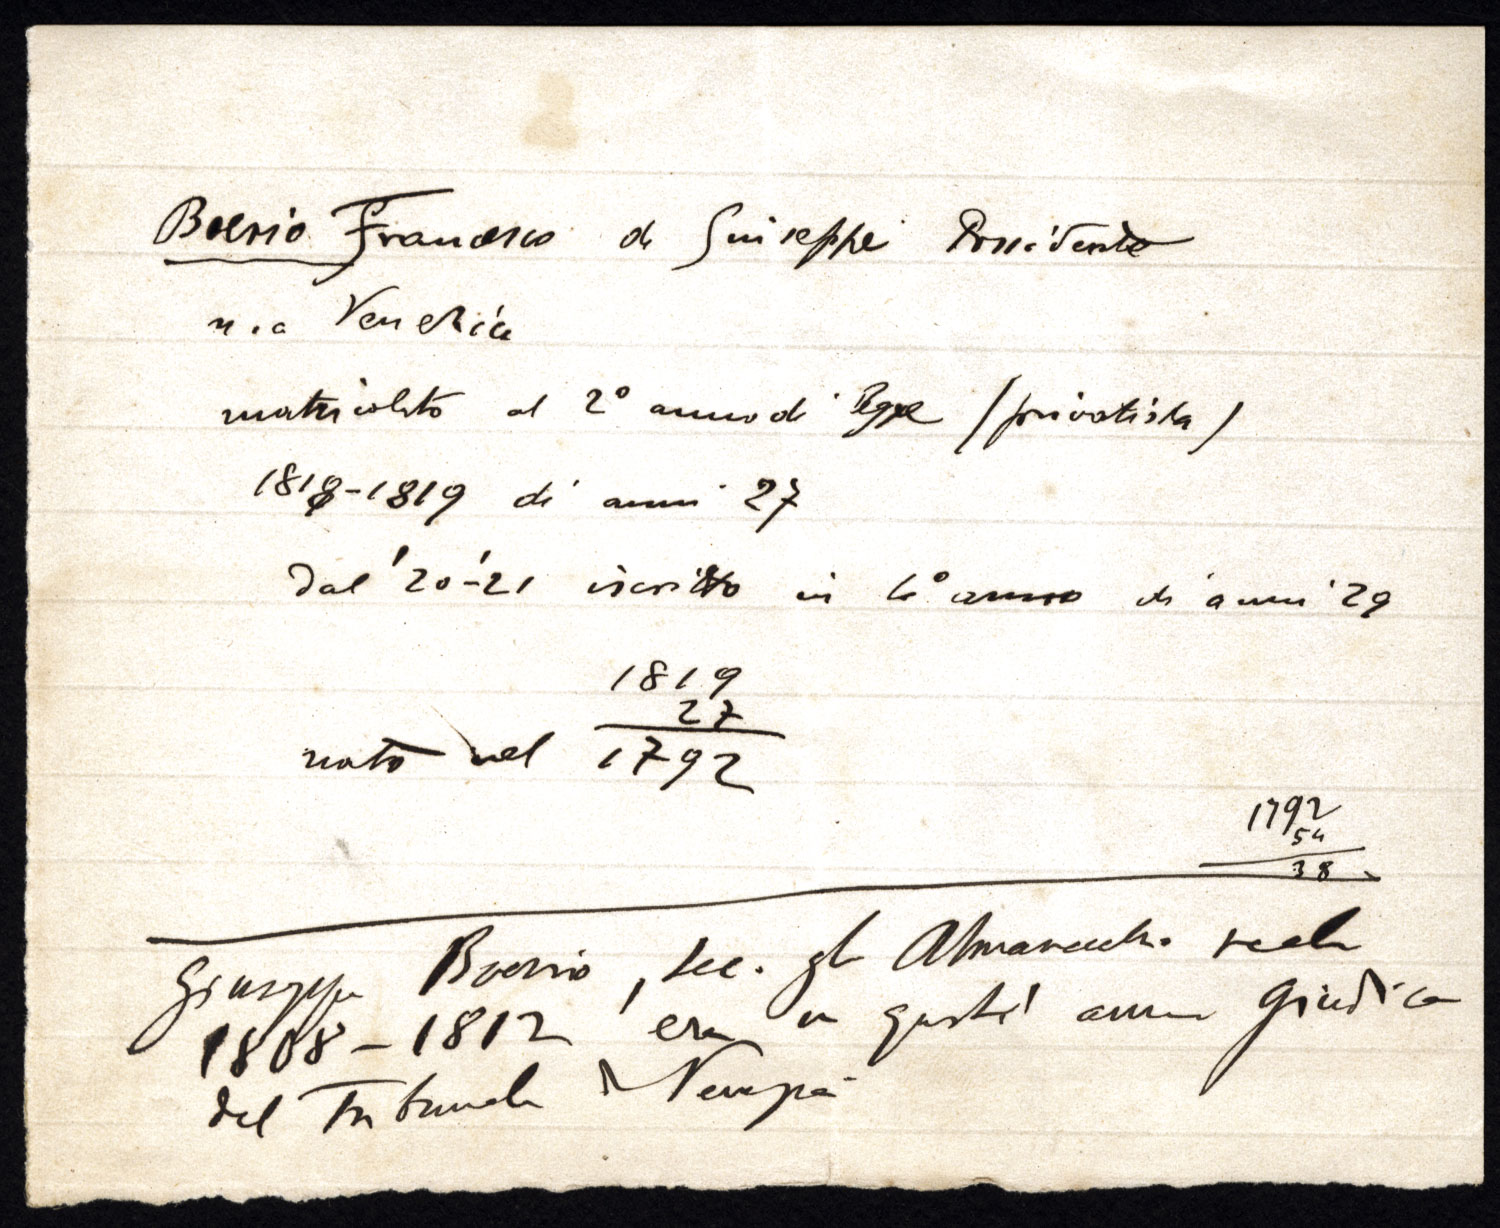 Boerio Francesco di Giuseppe Possidente
n. a Venezia
matricolato al 2° anno di legge (privatista)
1818-1819 di anni 27
Dal '20-'21 iscritto in 4° anno di anni 29
1819
27
nato nel 1792
1792
54
38
Giuseppe Boerio, sec. gli Almanacchi reali
1808-1812 era in questi anni Giudice
del Tribunale di Venezia